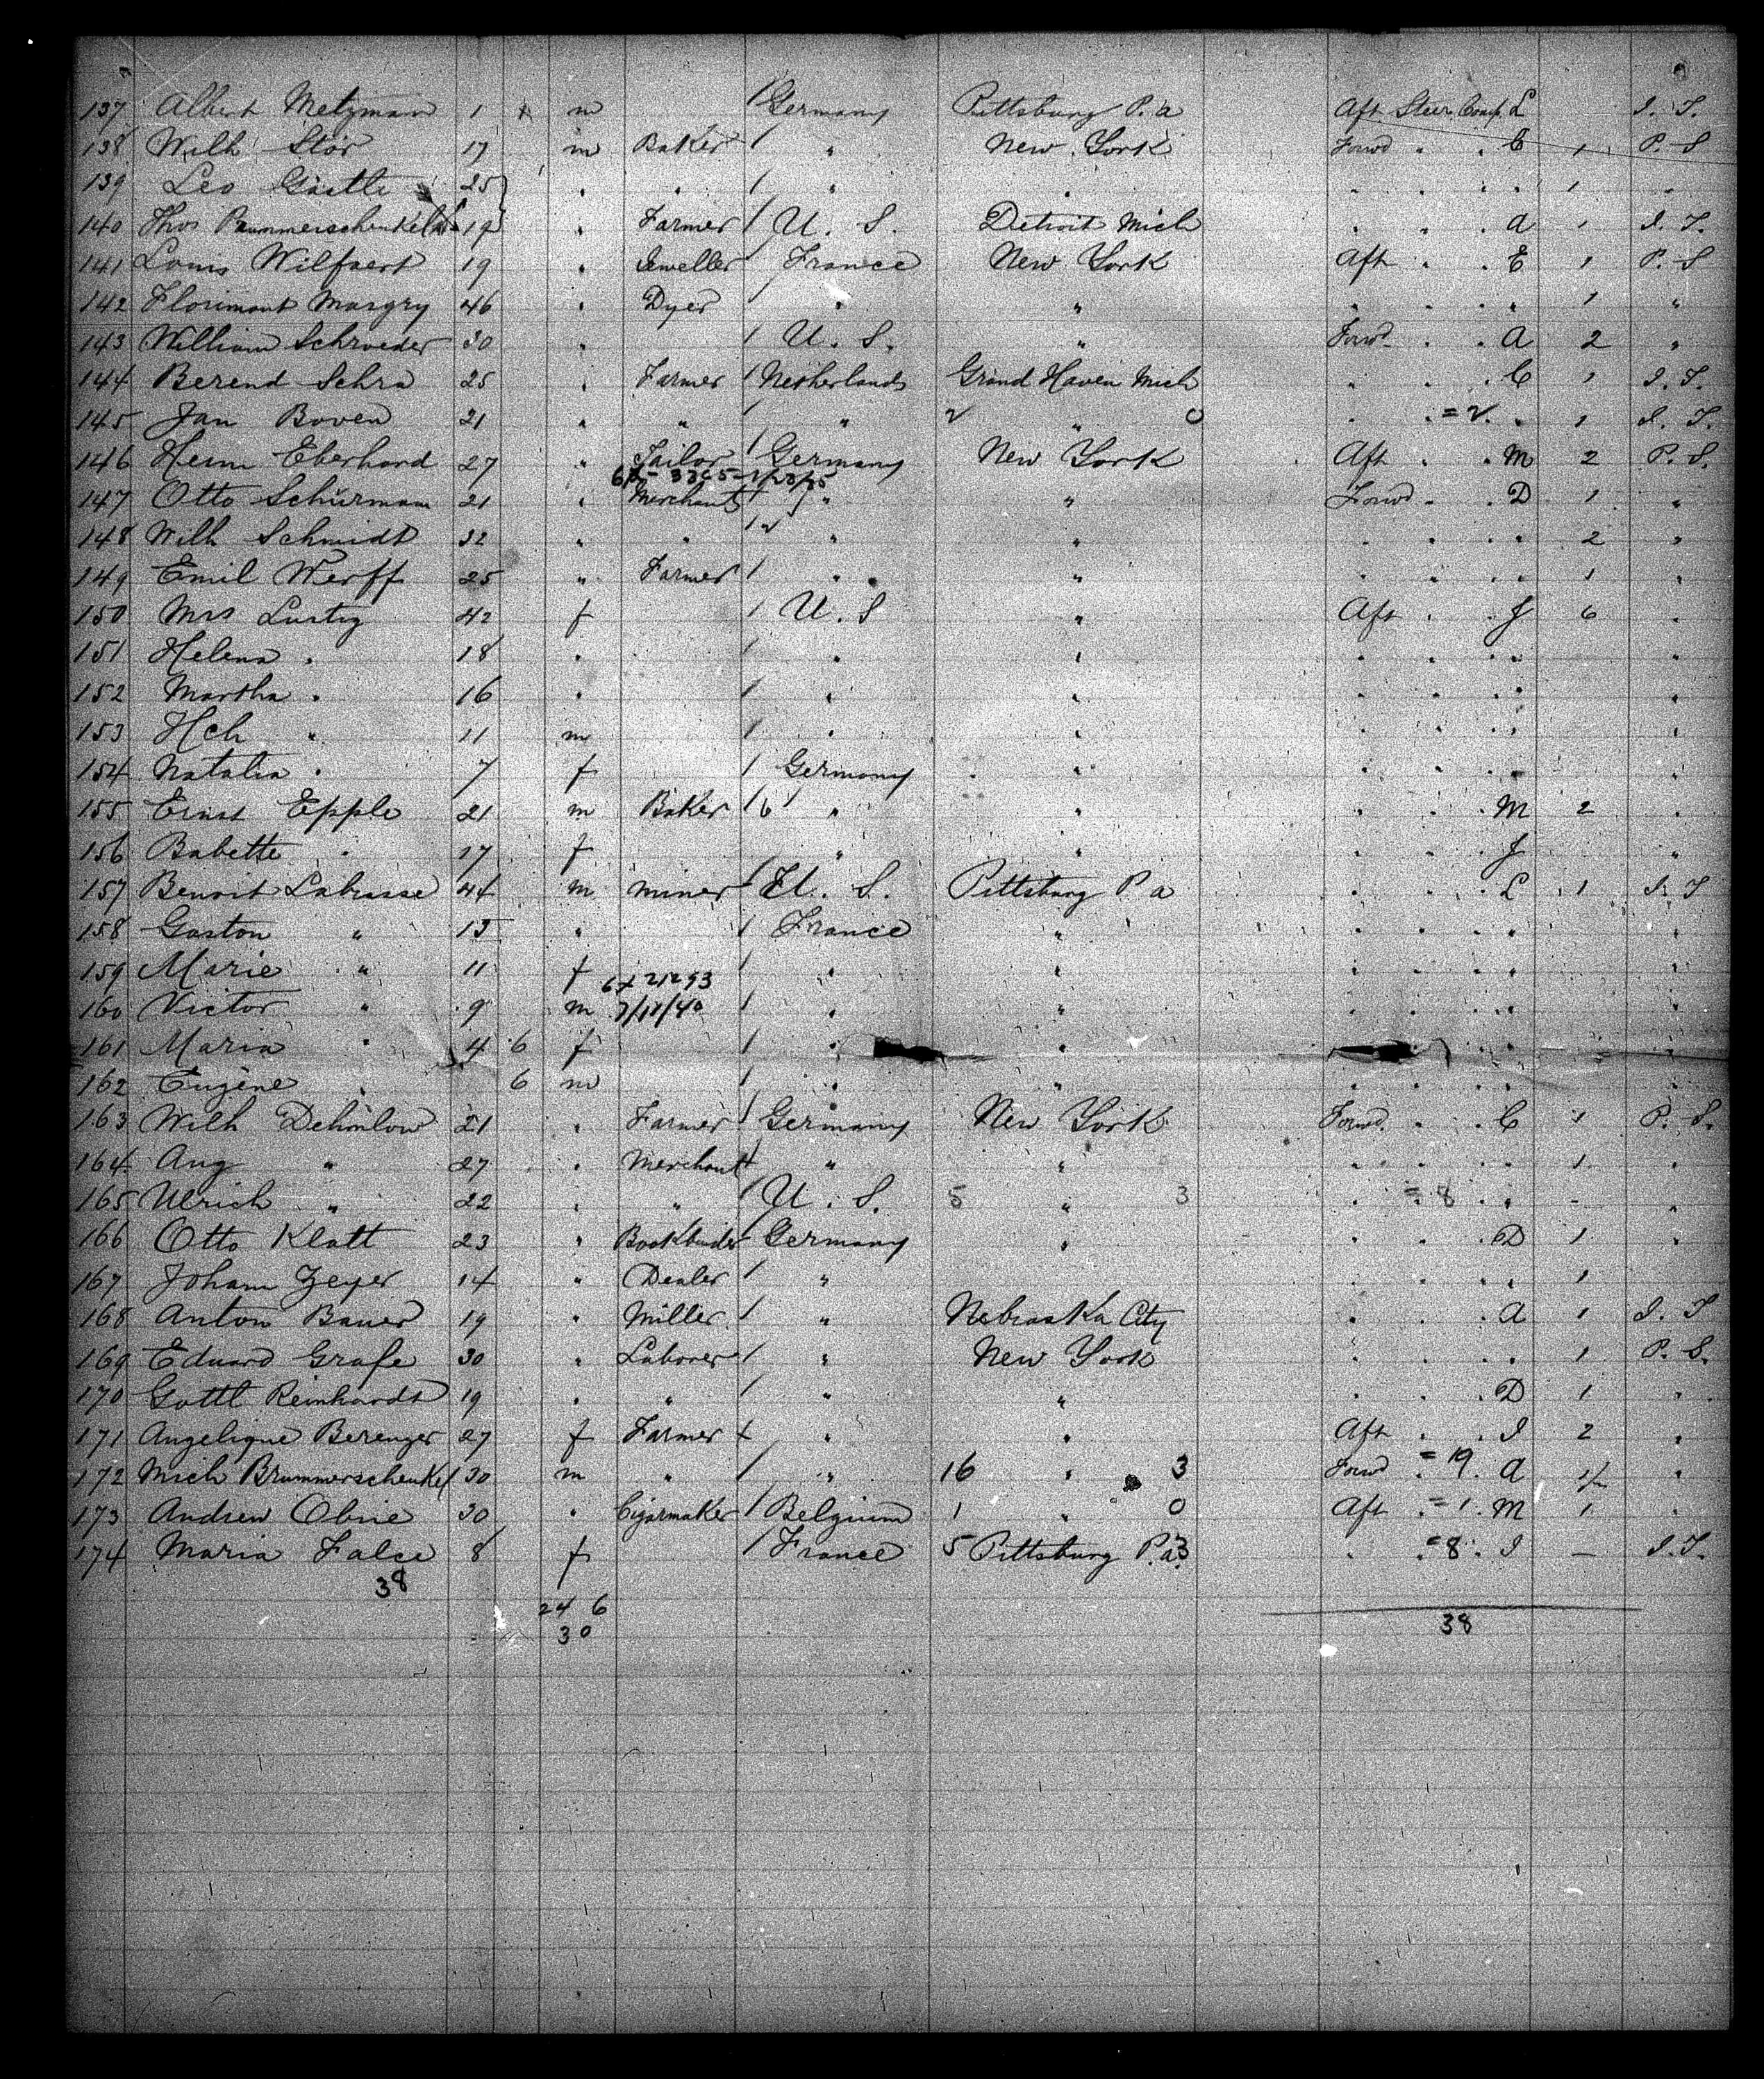 137 Albert Metzman 1 m Germany Pittsburg P.a Aft Steer. Comp. L I. T.
138 Wilh Stör 17 m Baker " New York Forwd " . C 1 P. S
139 Leo 25 " " " " " " " " 1 "
140 Thos Brummerschenkel 19 " Farmer U. S. Detroit Mich " " " A 1 I. T.
141 Louis Wilfaert 19 " Jeweller France New York Aft " " E 1 P. S
142 Florimont Margry 46 " Dyer " " " " " " 1 "
143 William Schroeder 30 " U. S. " Forwd " " A 2 "
144 Berend Schra 25 " Farmer Netherlands Grand Haven Mich " " " C 1 I. T.
145 Jan Boven 21 " " " 2 " 0 " " = 2 " 1 I. T.
146 Herm Eberhard 27 " Tailor Germany New York Aft " " M 2 P. S.
147 Otto Schürmann 21 " Merchant " " Forwd " " D 1 "
148 Wilh Schmidt 32 " " " " " " " " 2 "
149 Emil Werff 25 " Farmer " " " " " " 1 "
150 Mrs Lustig 42 f U. S " Aft " " J 6 "
151 Helena " 18 " " " " " " " "
152 Martha " 16 " " " " " " " "
153 Hch " 11 m " " " " " " "
154 Natalia " 7 f Germany " " " " " "
155 Ernst Epple 21 m Baker 6 " " " " " M 2 "
156 Babette " 17 f " " " " " J "
157 Benoit Labrasse 44 m Miner U. S. Pittsburg P a " " " L 1 I. T
158 Gaston " 15 " France " " " " " "
159 Marie " 11 f " " " " " " "
6x 21293
160 Victor " 9 m 7/17/40 " " " " " " "
161 Maria " 4 6 f " " " " "
162 Eugène " 6 m " " " " " " "
163 Wilh Dehmlow 21 " Farmer Germany New York Forwd. " " C 1 P. S.
164 Aug " 27 " Merchant " " " " " " 1 "
165 Ulrich " 22 " " U. S. 5 " 3 " = 8 " " - "
166 Otto Klatt 23 " Bookbinder Germany " " " " D 1 "
167 Johann Zeyer 14 " Dealer " " " " " 1 "
168 Anton Bauer 19 " Miller " Nebraska City " " " A 1 I. T
169 Eduard Grafe 30 " Laborer " New York " " " " 1 P. S.
170 Gottl Reinhardt 19 " " " " " " " D 1 "
171 Angelique Berenger 27 f Farmer " " Aft " " I 2 "
172 Mich Brummerschenkel 30 m " " 16 " 3 Forwd = 19. A "
173 Andrew Obrie 30 " Cigarmaker Belgium 1 " 0 Aft = 1. M 1 "
174 Maria Falce 8 f France 5 Pittsburg P.a. 3 " = 8. I — I. T.
38
24 6
30
38